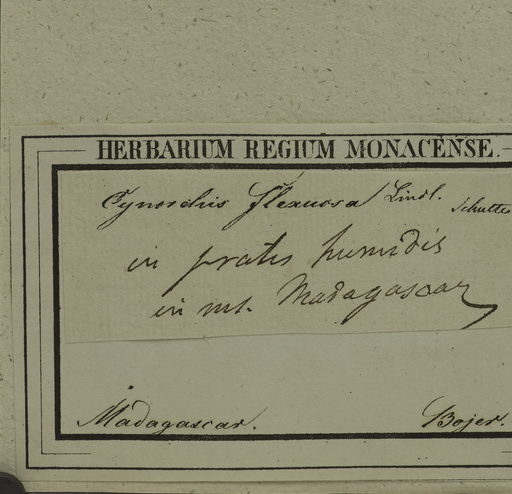 HERBARIUM REGIUM MONACENSE.
Cynorchis flexuosa Lindl.
in pratis humidis
in ms. Madagascar
Madagascar. Bojer.